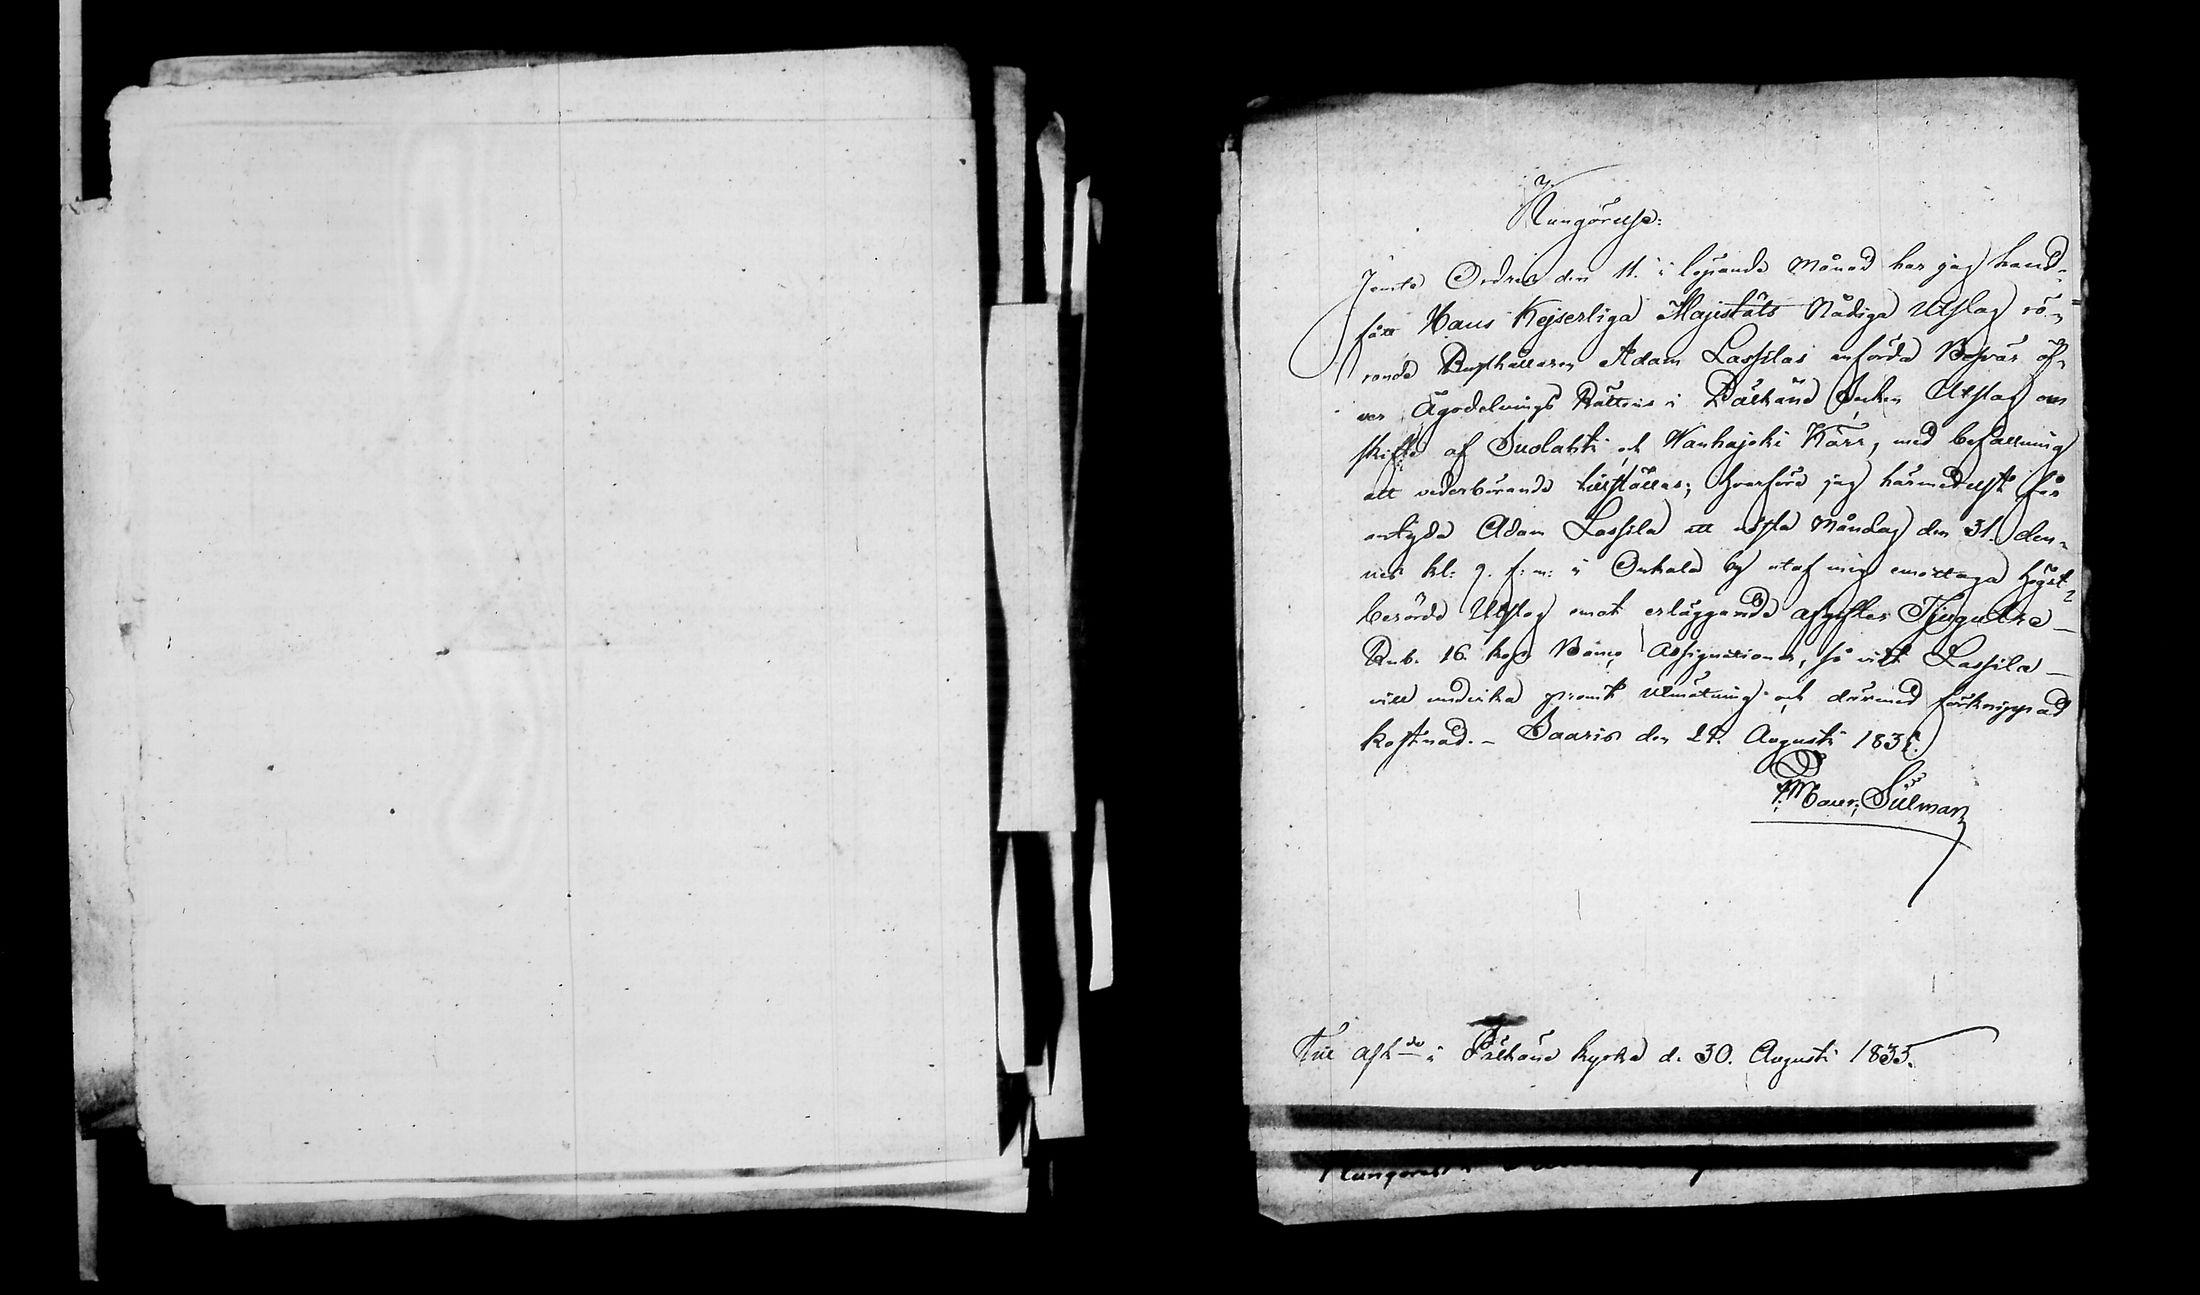 Kungörelse:
Jemte Ordres den 11. i löpande Månad har jag hand-
fått Hans Kejserliga Majestäts Nådiga Utslag rö-
rande Rusthållaren Adam Lassilas anförda Besvär öf-
ver Ägodelnings Rättens i Pälkäne Socken Utslag om
skifte af Suolahti och Wanhajoki Kärr, med befallning
att vederbörande tillställas; hvarföre jag härmedelst får
antyda Adam Lassila att nästa Måndag den 31. den-
nes kl: 9. f: m: i Onkala by utaf mig emottaga högst-
berörde Utslag emot erläggande afgifter Tjugutre
Rub. 16. kop. Banco Assignationer, så vidt Lassila
vill undvika promt utmätning och därmed förknippad
kostnad. - Saaris den 24. Augusti 1835.
Sülman
Till afk de i Pälkäne kyrka d. 30. Augusti 1835.
Kungörelse